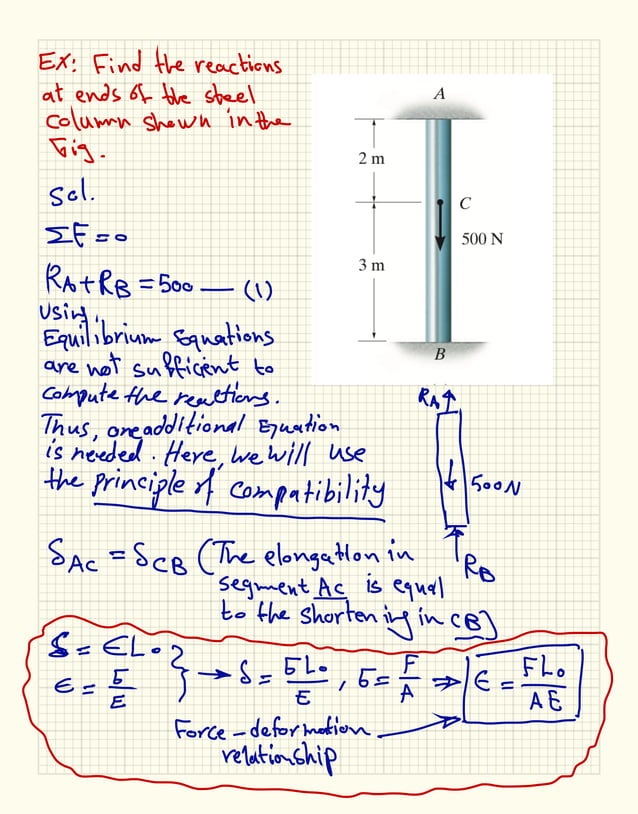 EX: Find the reactions
at ends of the steel
column shown in the
Fig.
Sol.
ΣF = 0
RA + RB = 500 — (1)
Using
Equilibrium Equations
are not sufficient to
compute the reactions.
Thus, one additional Equation
is needed. Here, we will use
the principle of compatibility
A
2 m
C
500 N
3 m
B
RA
500N
RB
δAC = δCB (The elongation in
segment AC is equal
to the shortening in CB)
δ = ϵL₀
ϵ = σ/E } → δ = σL₀/E , σ = F/A ⇒ ϵ = FL₀/AE
Force - deformation
relationship